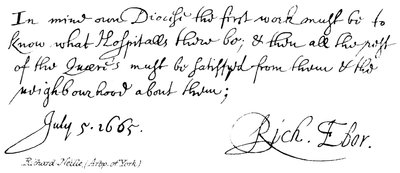 In mine own Diocise the first work must be to
know what Hospitalls there be; & then all the rest
of the Quæries must be satisfyed from them & the
neighbourhood about them;
July 5. 1665.
Rich. Ebor.
Richard Neile (Artbp. of York)